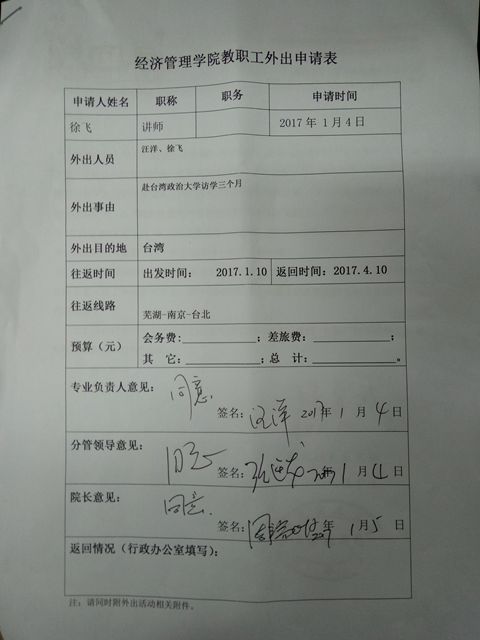 经济管理学院教职工外出申请表
申请人姓名 职称 职务 申请时间
徐飞 讲师 2017年1月4日
外出人员 汪洋、徐飞
外出事由 赴台湾政治大学访学三个月
外出目的地 台湾
往返时间 出发时间: 2017.1.10 返回时间:2017.4.10
往返线路 芜湖-南京-台北
预算（元） 会务费:____________; 差旅费:____________;
其 它:____________; 总 计:____________。
专业负责人意见: 同意
签名: 汪洋 2017年 1 月 4 日
分管领导意见: 同意
签名: 1 月 4 日
院长意见: 同意.
签名: 年 1 月 5 日
返回情况（行政办公室填写）:
注: 请同时附外出活动相关附件。